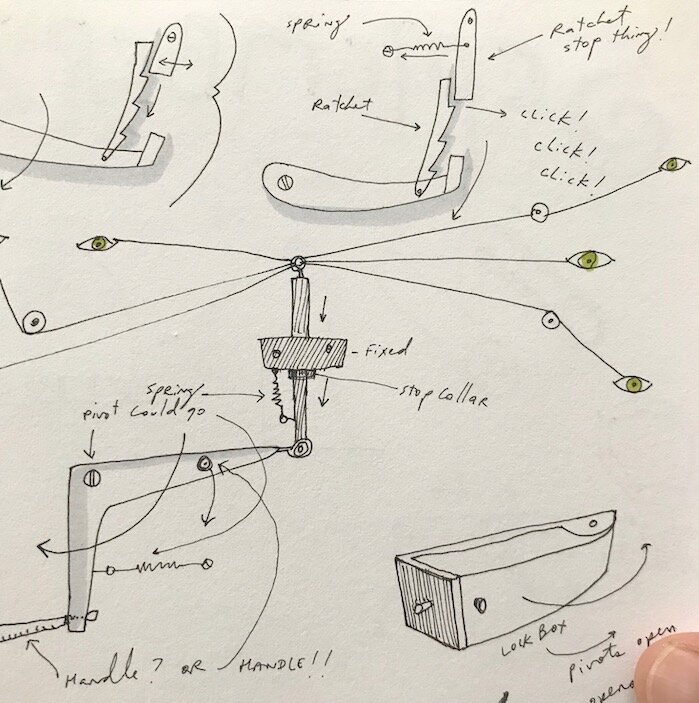 spring
Ratchet
stop thing!
Ratchet
click!
click!
click!
- Fixed
spring
stop collar
pivot could go
Handle? OR HANDLE!!
Lock Box
Pivots open
opens